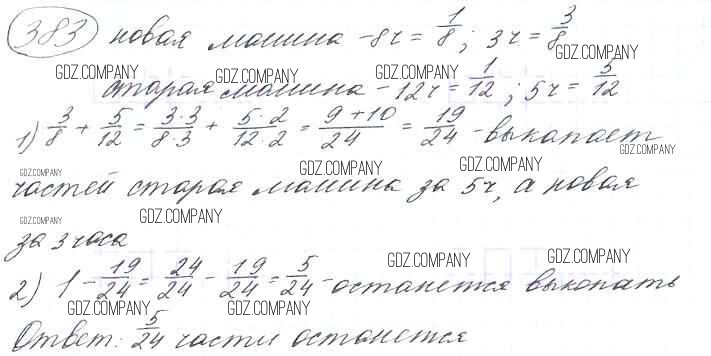 383 новая машина - 8ч = 1/8; 3ч = 3/8
GDZ.COMPANY
GDZ.COMPANY GDZ.COMPANY
старая машина - 12ч = 1/12; 5ч = 5/12
GDZ.COMPANY GDZ.COMPANY
1) 3/8 + 5/12 = 3·3/8·3 + 5·2/12·2 = 9+10/24 = 19/24 - выкапает
GDZ.COMPANY
GDZ.COMPANY GDZ.COMPANY GDZ.COMPANY
частей старая машина за 5ч, а новая
GDZ.COMPANY GDZ.COMPANY
за 3 часа
GDZ.COMPANY GDZ.COMPANY
2) 1 - 19/24 = 24/24 - 19/24 = 5/24 - останется выкопать
GDZ.COMPANY GDZ.COMPANY GDZ.COMPANY
Ответ: 5/24 части останется